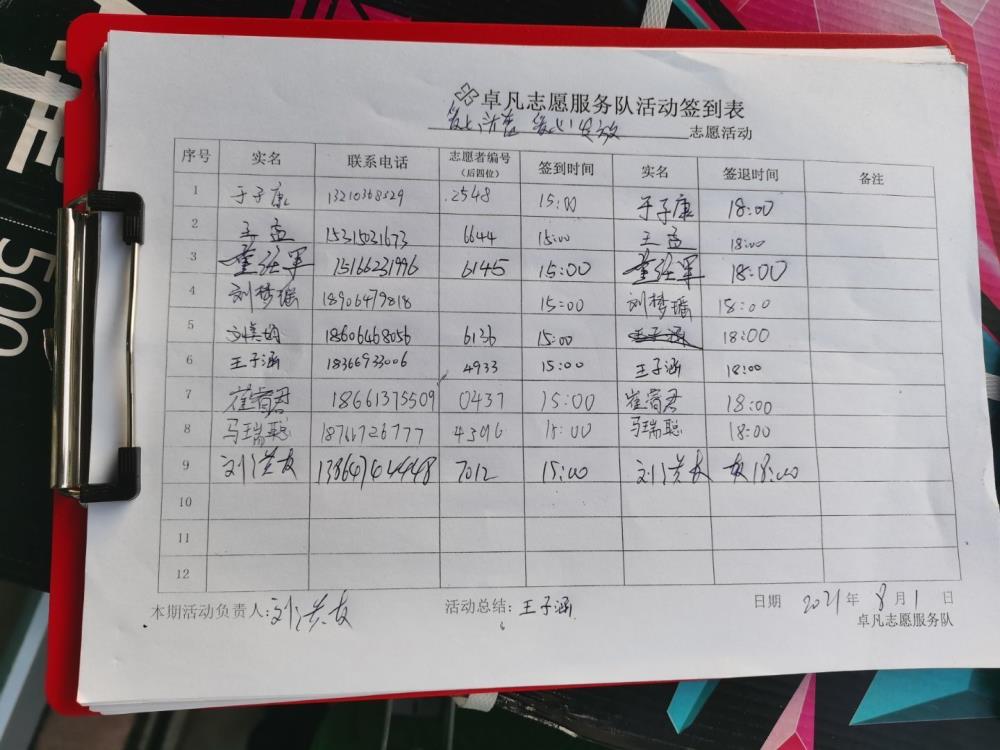 卓凡志愿服务队活动签到表
志愿活动
序号 实名 联系电话 志愿者编号(后四位) 签到时间 实名 签退时间 备注
1 于子康 13210368529 2548 15:00 于子康 18:00
2 王孟 15315031673 6644 15:00 王孟 18:00
3 15166231996 6145 15:00 18:00
4 刘梦瑶 18906479818 15:00 刘梦瑶 18:00
5 18606468056 6136 15:00 王子涵 18:00
6 王子涵 18366933006 4933 15:00 王子涵 18:00
7 崔睿君 18661375509 0437 15:00 崔睿君 18:00
8 马瑞聪 18766726777 4396 15:00 马瑞聪 18:00
9 刘洪友 13864704448 7012 15:00 刘洪友 友 18:00
10
11
12
本期活动负责人:刘洪友 活动总结:王子涵 日期 2021年8月1日
卓凡志愿服务队
500